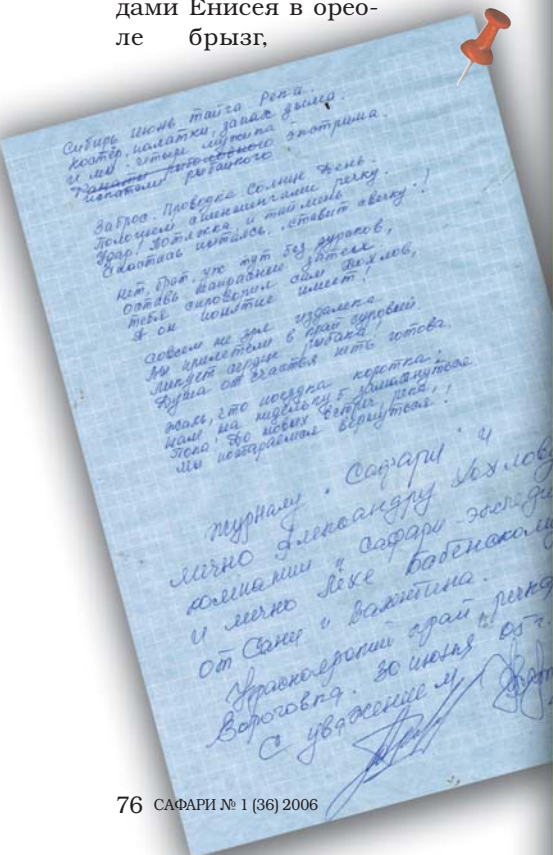 дами Енисея в орео-
ле брызг,
Сибирь Июнь тайга Река.
Костёр, палатки, запах дыма.
И мы - четыре мужика -
искатели рыбацкого экстрима.
Заброс. Проводка Солнце День.
Полощем спиннингами речку.
Удар! Потяжка и таймень
Снастись пытаясь, ставит свечку!
Нет, брат, уж тут без дураков,
оставь напрасные затеи
тебя сам Хохлов,
А он понятие имеет!
Совсем не зря издалека
Мы прилетели в край суровый
Ликует сердце рыбака!
Душа от счастья петь готова.
Жаль, что поездка коротка:
Нам на недельку б
Пока! До новых встреч река,
Мы постараемся вернуться!
журналу "Сафари" и
лично Александру Хохлову
компании "Сафари-экспеди
и лично Лёхе Бабенскому
от Сани и Валентина.
Красноярский край речка
Вороговка. 30 июня 05 г.
С уважением
76 САФАРИ № 1 (36) 2006